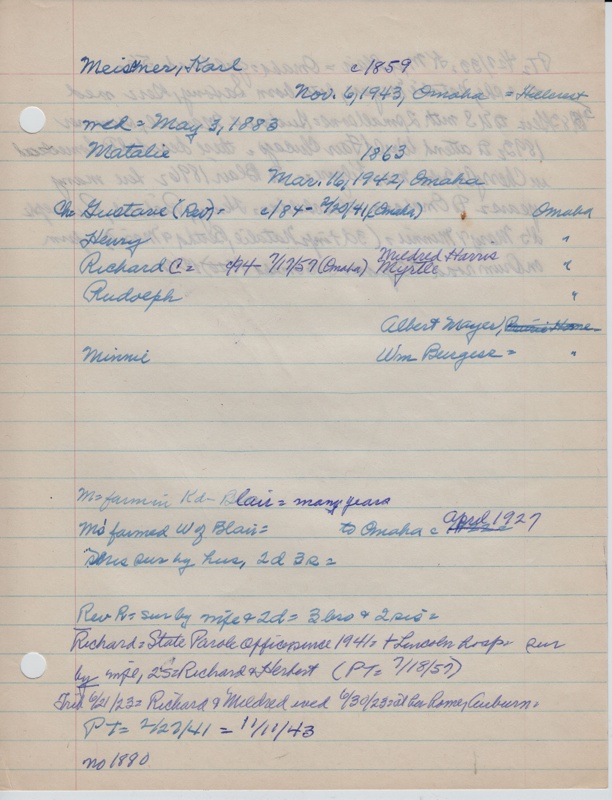 Meisner, Karl c1859
Nov. 6, 1943, Omaha = Helmut
med = May 3, 1883
Matalie 1863
Mar. 16, 1942, Omaha
Ch: Gustave (Rev) = c/84 - 2/20/41, (Omaha) Omaha
Henry "
Richard C = c/94 7/17/57 (Omaha) Mildred Harris Myrtle "
Rudolph "
Albert Mayer,
Minnie Wm Burgess = "
M = farm in Kd - Blair = many years
Ms farmed W of Blair = to Omaha c April 1927
sur by hus, 2d 3s =
Rev R = sur by wife & 2d = 3 bro & 2 sis =
Richard = State Parole Officer since 1941 = + Lincoln hosp = sur
by wife, 2S = Richard & Herbert (PT = 7/18/57)
Trib 6/21/23 = Richard & Mildred wed 6/30/23 = at her home, Auburn =
PT = 2/27/41 = 11/11/43
no 1880